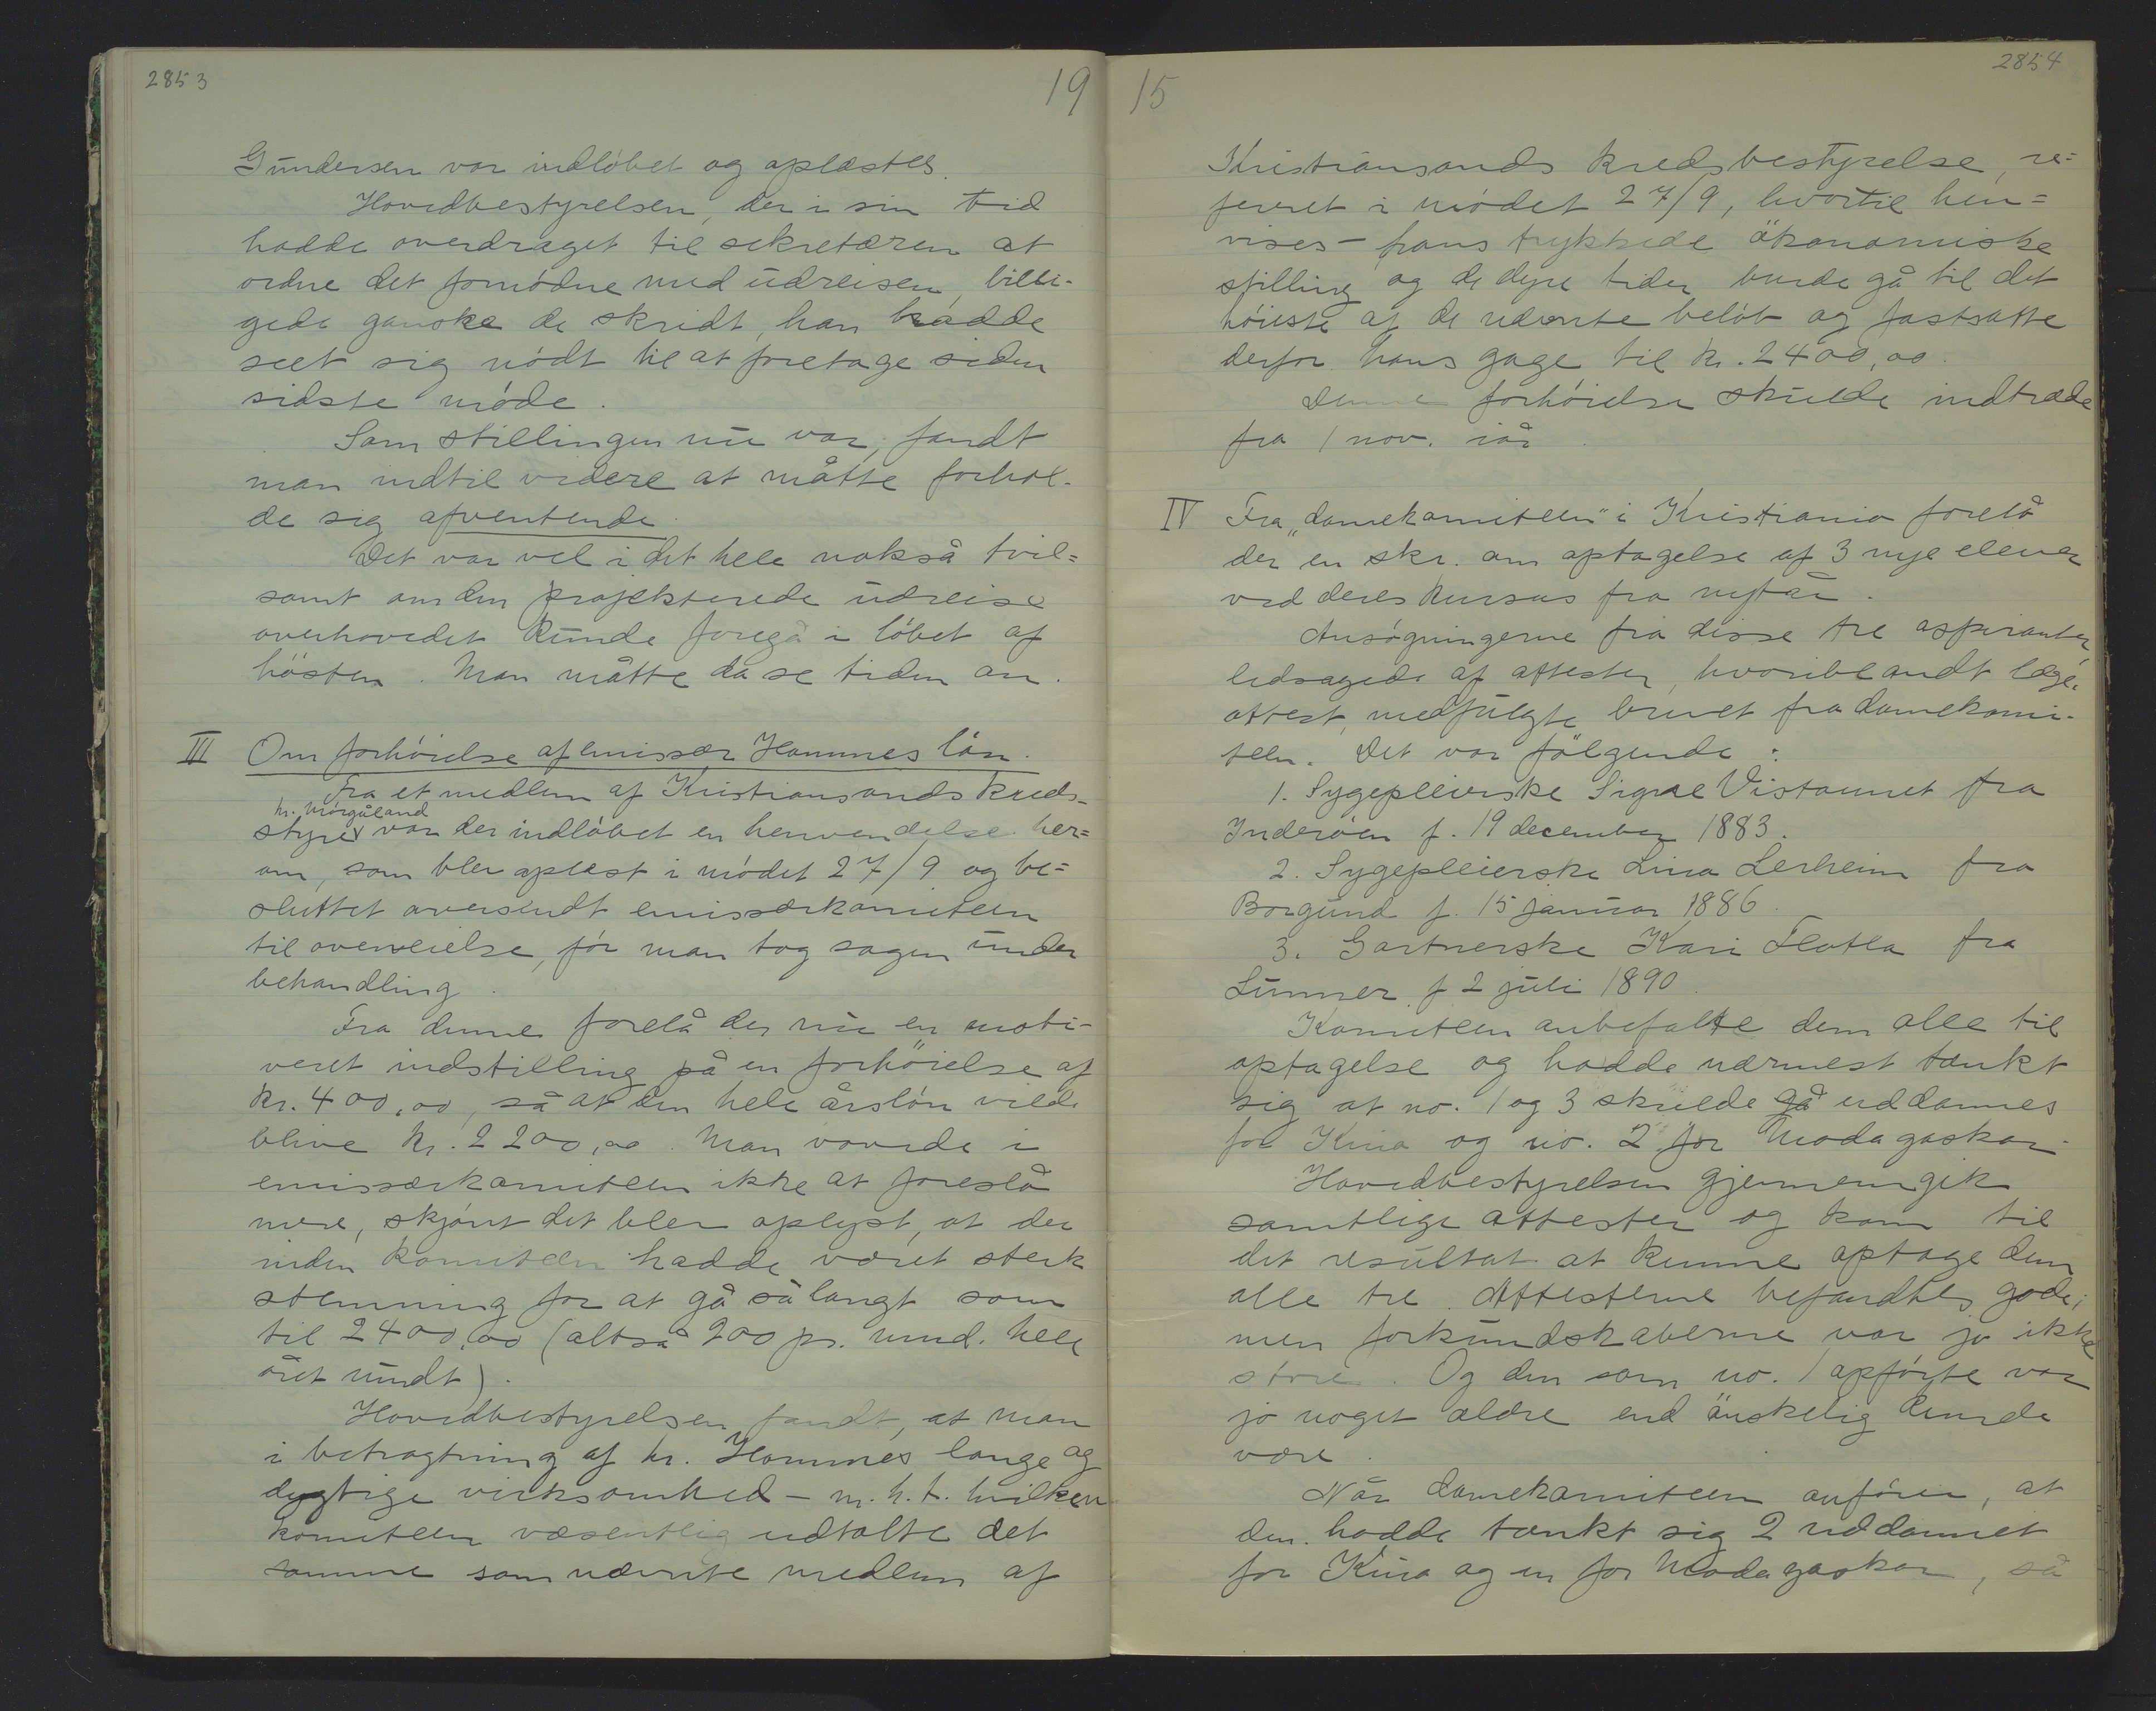 2853
19
Gundersen var indløbet og oplæstes.
Hovedbestyrelsen, der i sin tid
hadde overdraget til sekretæren at
ordne det fornødne med udreisen, billi-
gede ganske de skridt, han hadde
seet sig nødt til at foretage siden
sidste møde.
Som stillingen nu var, fandt
man indtil videre at måtte forhol-
de sig afventende.
Det var vel i det hele nokså tvil=
somt om den projekterede udreise
overhovedet kunde foregå i løbet af
høsten. Man måtte da se tiden an.
III Om forhøielse af emissær Hommes løn.
Fra et medlem af Kristiansands kreds-
hr. Mørgåland
styre var der indløbet en henvendelse her=
om, som blev oplæst i mødet 27/9 og be=
sluttet oversendt emissærkomiteen
til overveielse, før man tog sagen under
behandling.
Fra denne forelå der nu en moti-
veret indstilling på en forhöielse af
kr. 400,00, så at den hele årsløn vilde
blive kr. 2200,00. Man vovede i
emissærkomiteen ikke at foreslå
mere, skjønt det blev oplyst, at der
inden komiteen hadde været sterk
stemning for at gå så langt som
til 2400,00 (altså 200 pr. mnd. hele
året rundt).
Hovedbestyrelsen fandt, at man
i betragtning af hr. Hommes lange og
dygtige virksomhed - m.h.t. hvilken
komiteen væsentlig udtalte det
samme som nævnte medlem af
15
2854
Kristiansands kredsbestyrelse, re=
fereret i mødet 27/9, hvortil hen=
vises - hans trykkede ökonomiske
stilling og de dyre tider burde gå til det
høieste af de nævnte beløb og fastsatte
derfor hans gage til kr. 2400,00.
Denne forhøielse skulde indtræde
fra 1 nov. iår.
IV Fra „damekomiteen“ i Kristiania forelå
der en skr. om optagelse af 3 nye elever
ved deres kursus fra nytår.
Ansøgningerne fra disse tre aspiranter
ledsagede af attester, hvoriblandt læge-
attest, medfulgte brevet fra damekomi-
teen. Det var følgende:
1. Sygepleierske Signe Vistaunet fra
Inderøen f. 19 december 1883.
2. Sygepleierske Lina Lerheim fra
Borgund f. 15 januar 1886.
3. Gartnerske Kari Flatla fra
Lunner f 2 juli 1890.
Komiteen anbefalte dem alle til
optagelse og hadde nærmest tænkt
sig at no. 1 og 3 skulde gå uddannes
for Kina og no. 2 for Madagaskar.
Hovedbestyrelsen gjennemgik
samtlige attester og kom til
det resultat at kunne optage dem
alle tre. Attesterne befandtes gode;
men forkundskaberne var jo ikke
store. Og den som no. 1 opførte var
jo noget ældre end ønskelig kunde
være.
Når damekomiteen anfører, at
den hadde tænkt sig 2 uddannet
for Kina og en for Madagaskar, så